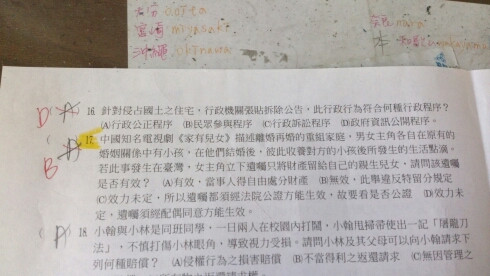 大分 OITA
宮崎 miyasaki
沖繩 OKINAWA
D 16. 針對侵占國土之住宅,行政機關張貼拆除公告,此行政行為符合何種行政程序?
(A)行政公正程序 (B)民眾參與程序 (C)行政訴訟程序 (D)政府資訊公開程序。
17. 中國知名電視劇《家有兒女》描述離婚再婚的重組家庭,男女主角各自在原有的
婚姻關係中有小孩,在他們結婚後,彼此收養對方的小孩後所發生的生活點滴。
B 若此事發生在臺灣,女主角立下遺囑只將財產留給自己的親生兒女,請問該遺囑
是否有效? (A)有效,當事人得自由處分財產 (B)無效,此舉違反特留分規定
(C)效力未定,所以遺囑都須經法院公證方能生效,故要看是否公證 (D)效力未
定,遺囑須經配偶同意方能生效。
A 18. 小翰與小林是同班同學,一日兩人在校園內打鬧,小翰甩掃帶使出一記「屠龍刀
法」,不慎打傷小林眼角,導致視力受損。請問小林及其父母可以向小翰請求下
列何種賠償? (A)侵權行為之損害賠償 (B)不當得利之返還請求 (C)無因管理之